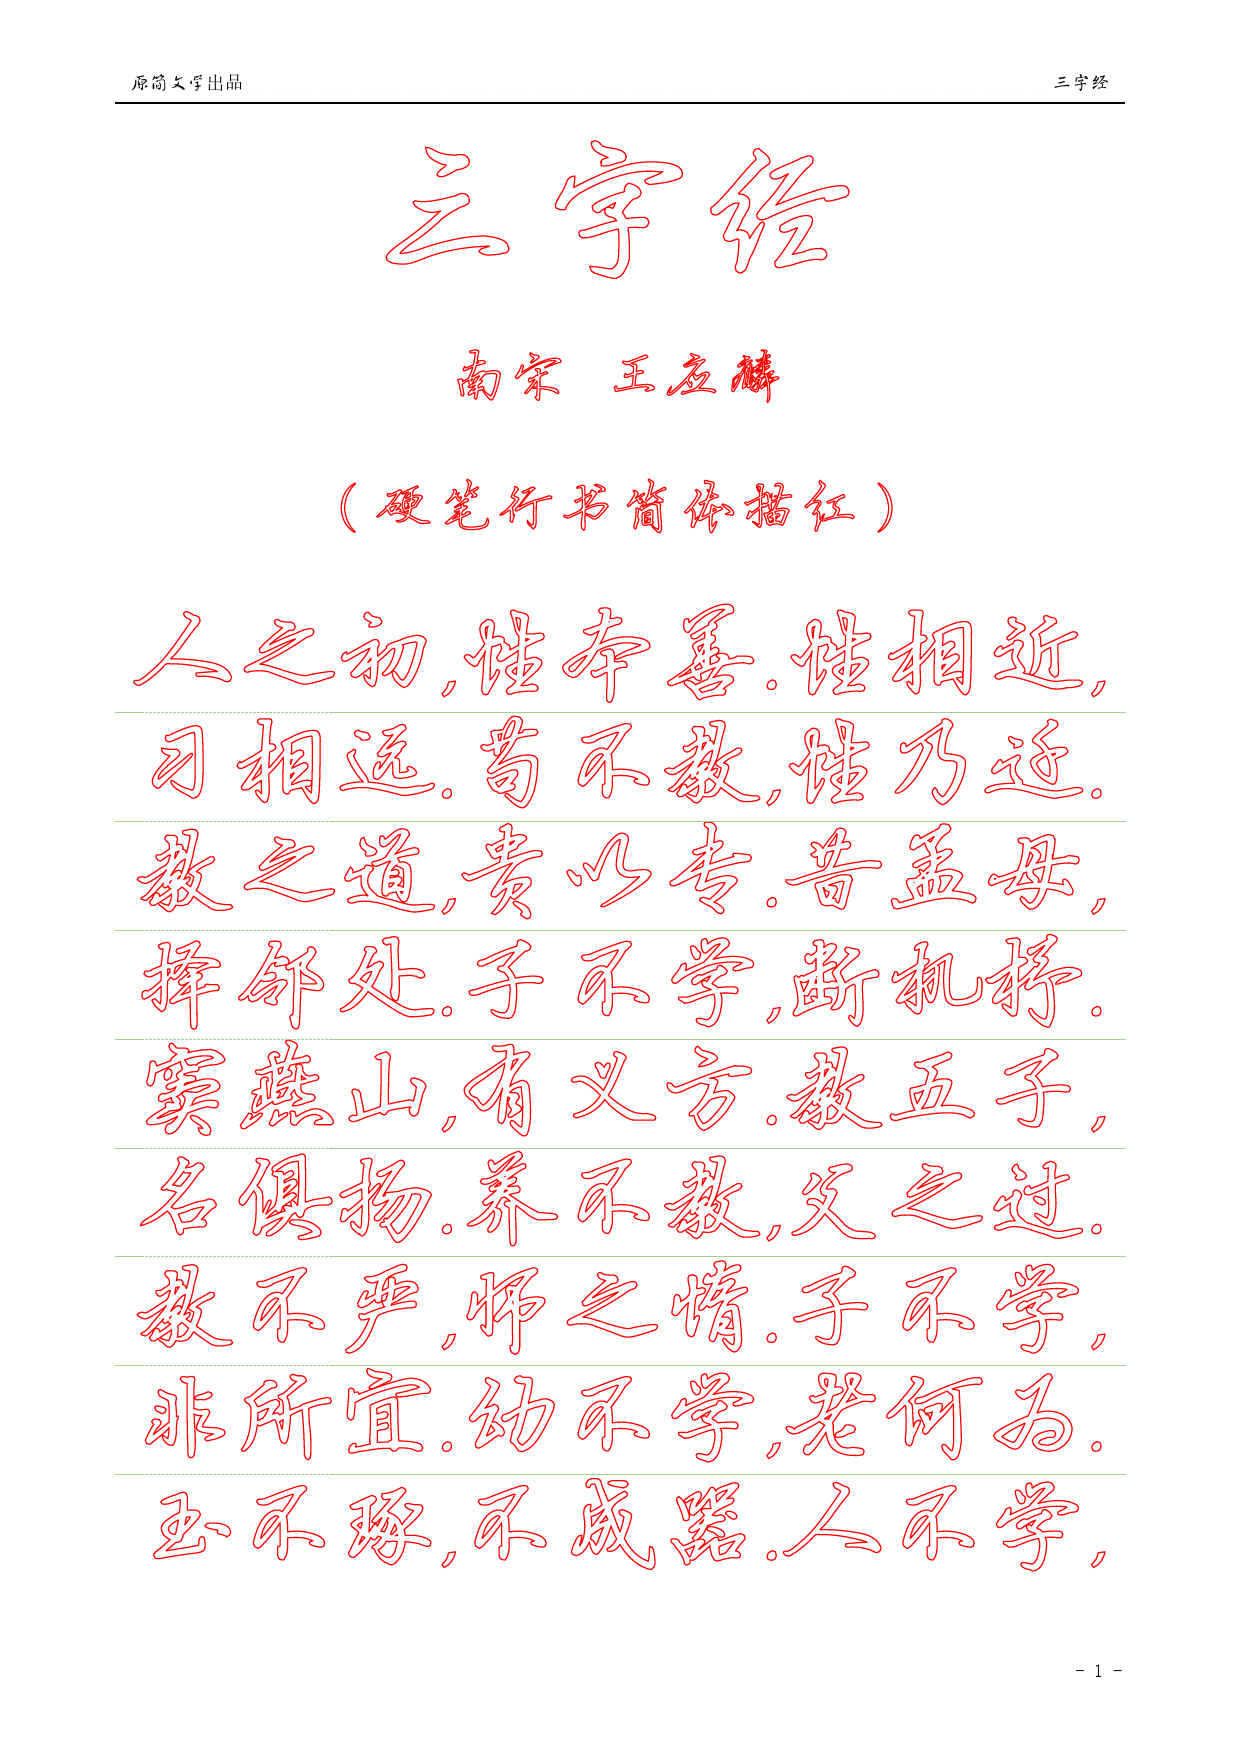 原简文学出品 三字经
三字经
南宋 王应麟
（硬笔行书简体描红）
人之初,性本善.性相近,
习相远.苟不教,性乃迁.
教之道,贵以专.昔孟母,
择邻处.子不学,断机杼.
窦燕山,有义方.教五子,
名俱扬.养不教,父之过.
教不严,师之惰.子不学,
非所宜.幼不学,老何为.
玉不琢,不成器.人不学,
- 1 -